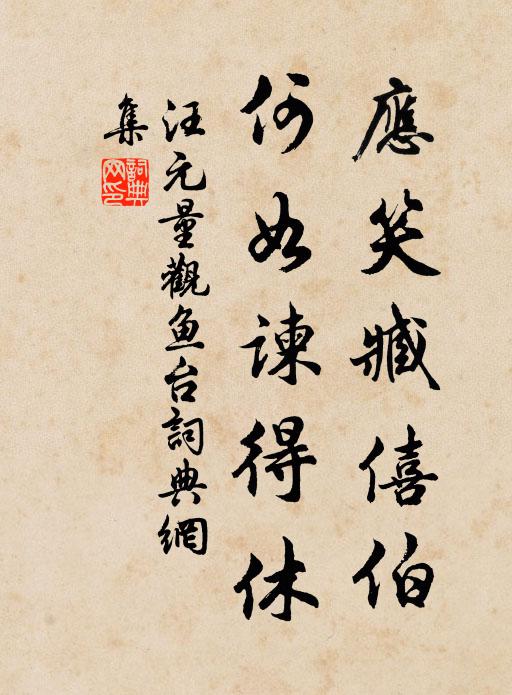 應笑臧僖伯
何如諫得休
汪元量觀鱼台詞典網
集
詞典網印